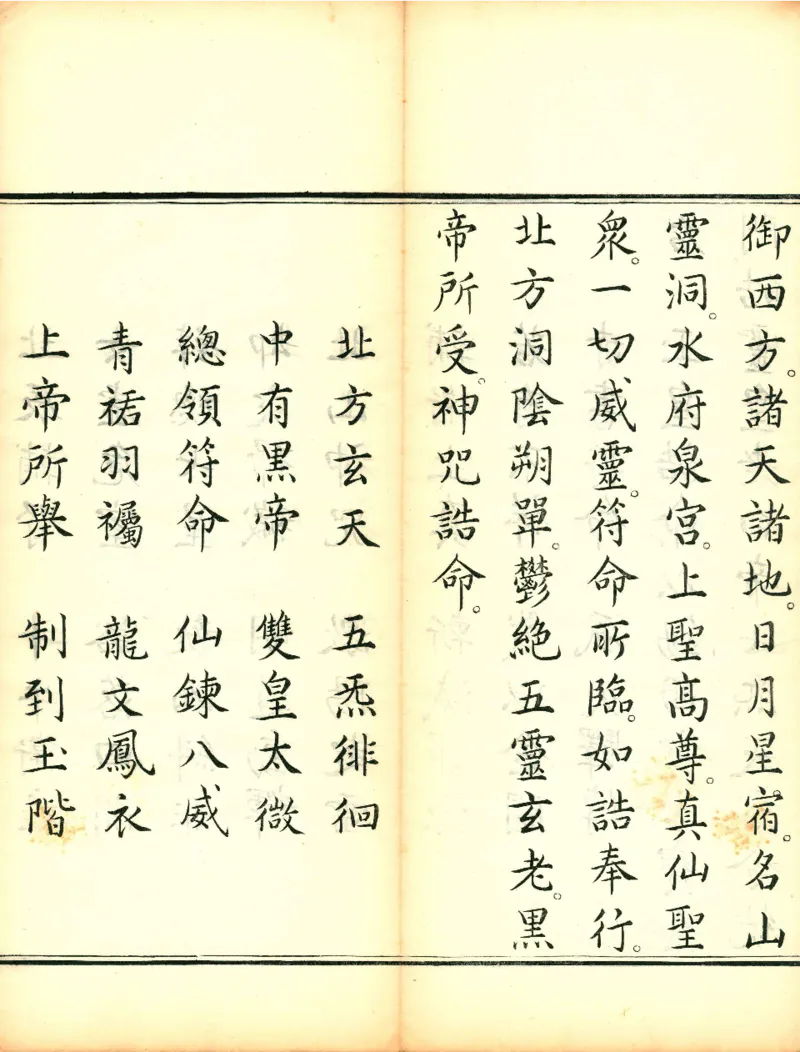 御西方。諸天諸地。日月星宿。名山
靈洞。水府泉宮。上聖高尊。真仙聖
眾。一切威靈。符命所臨。如誥奉行。
北方洞陰朔單。鬱絕五靈玄老。黑
帝所受。神咒誥命。
北方玄天　五炁徘徊
中有黑帝　雙皇太微
總領符命　仙鍊八威
青裙羽襹　龍文鳳衣
上帝所舉　制到玉階